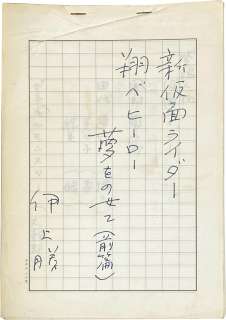 新仮面ライダー
翔べヒーロー
夢をのせて(前篇)
伊上勝